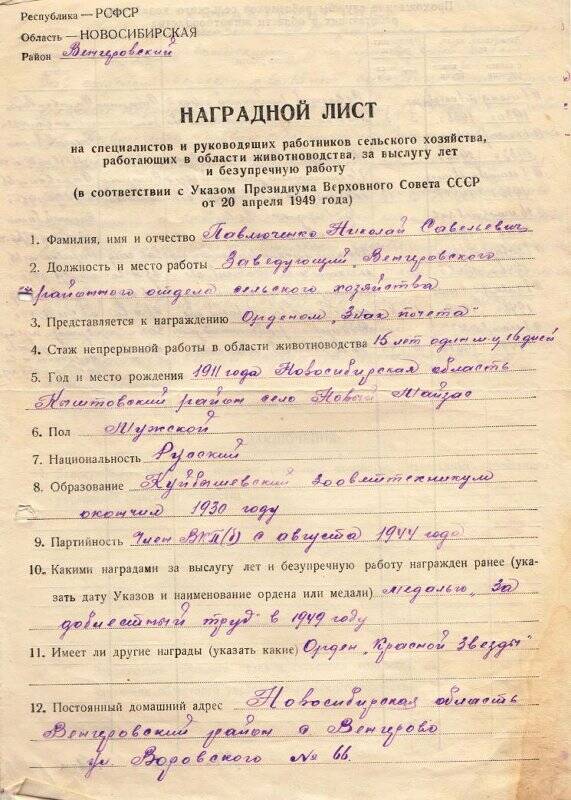 Республика — РСФСР
Область — НОВОСИБИРСКАЯ
Район Венгеровский
НАГРАДНОЙ ЛИСТ
на специалистов и руководящих работников сельского хозяйства,
работающих в области животноводства, за выслугу лет
и безупречную работу
(в соответствии с Указом Президиума Верховного Совета СССР
от 20 апреля 1949 года)
1. Фамилия, имя и отчество Павлюченко Николай Савельевич
2. Должность и место работы Заведующий Венгеровского
районного отдела сельского хозяйства
3. Представляется к награждению Орденом „Знак почета"
4. Стаж непрерывной работы в области животноводства 15 лет один м-ц 16 дней
5. Год и место рождения 1911 года Новосибирская область
Кыштовский район село Новый Майзас
6. Пол Мужской
7. Национальность Русский
8. Образование Куйбышевский зооветтехникум
окончил 1930 году
9. Партийность Член ВКП(б) с августа 1944 года
10. Какими наградами за выслугу лет и безупречную работу награжден ранее (ука-
зать дату Указов и наименование ордена или медали) медалью „За
доблестный труд" в 1949 году
11. Имеет ли другие награды (указать какие) Орден „Красной Звезды"
12. Постоянный домашний адрес Новосибирская область
Венгеровский район с Венгерово
ул. Воровского № 66.